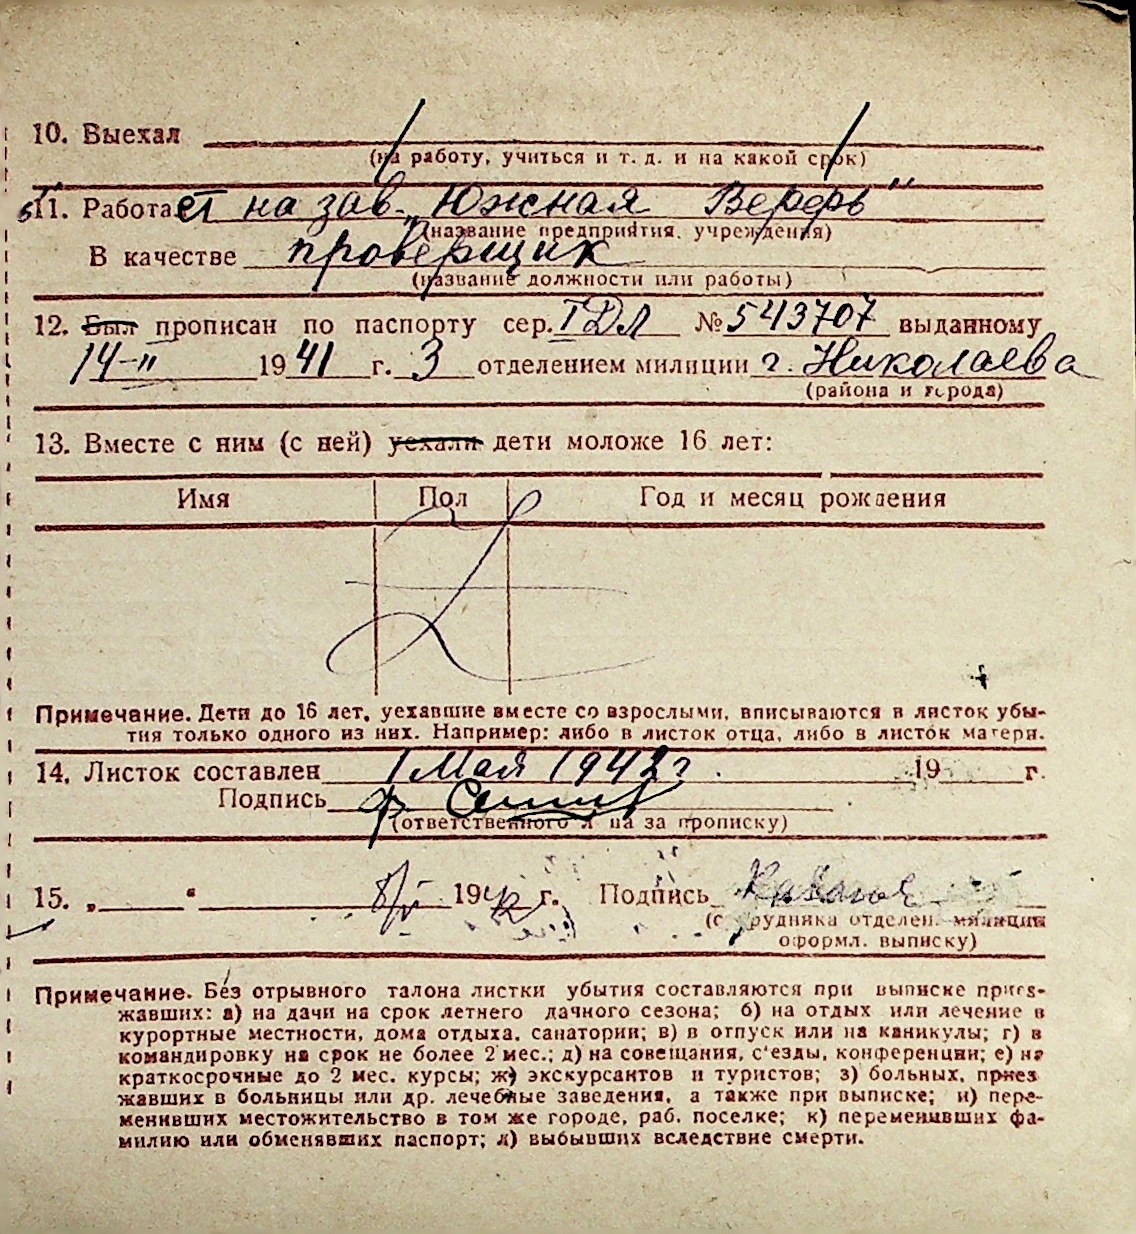 10. Выехал
(на работу, учиться и т. д. и на какой срок)
11. Работает на зав. „Южная Верфь"
(название предприятия, учреждения)
В качестве проверщик
(название должности или работы)
12. Был прописан по паспорту сер. IДЛ № 543707 выданному
14-II 1941 г. 3 отделением милиции г. Николаева
(района и города)
13. Вместе с ним (с ней) уехали дети моложе 16 лет:
Имя Пол Год и месяц рождения
Z
Примечание. Дети до 16 лет, уехавшие вместе со взрослыми, вписываются в листок убы-
тия только одного из них. Например: либо в листок отца, либо в листок матери.
14. Листок составлен 1 Мая 1942 г. 19 г.
Подпись
(ответственного л на за прописку)
15. „ “ 194 г. Подпись
(сотрудника отделен. милиции
оформл. выписку)
Примечание. Без отрывного талона листки убытия составляются при выписке приез-
жавших: а) на дачи на срок летнего дачного сезона; б) на отдых или лечение в
курортные местности, дома отдыха, санатории; в) в отпуск или на каникулы; г) в
командировку на срок не более 2 мес.; д) на совещания, с'езды, конференции; е) на
краткосрочные до 2 мес. курсы; ж) экскурсантов и туристов; з) больных, приез
жавших в больницы или др. лечебные заведения, а также при выписке; и) пере-
менивших местожительство в том же городе, раб. поселке; к) переменивших фа-
милию или обменявших паспорт; л) выбывших вследствие смерти.